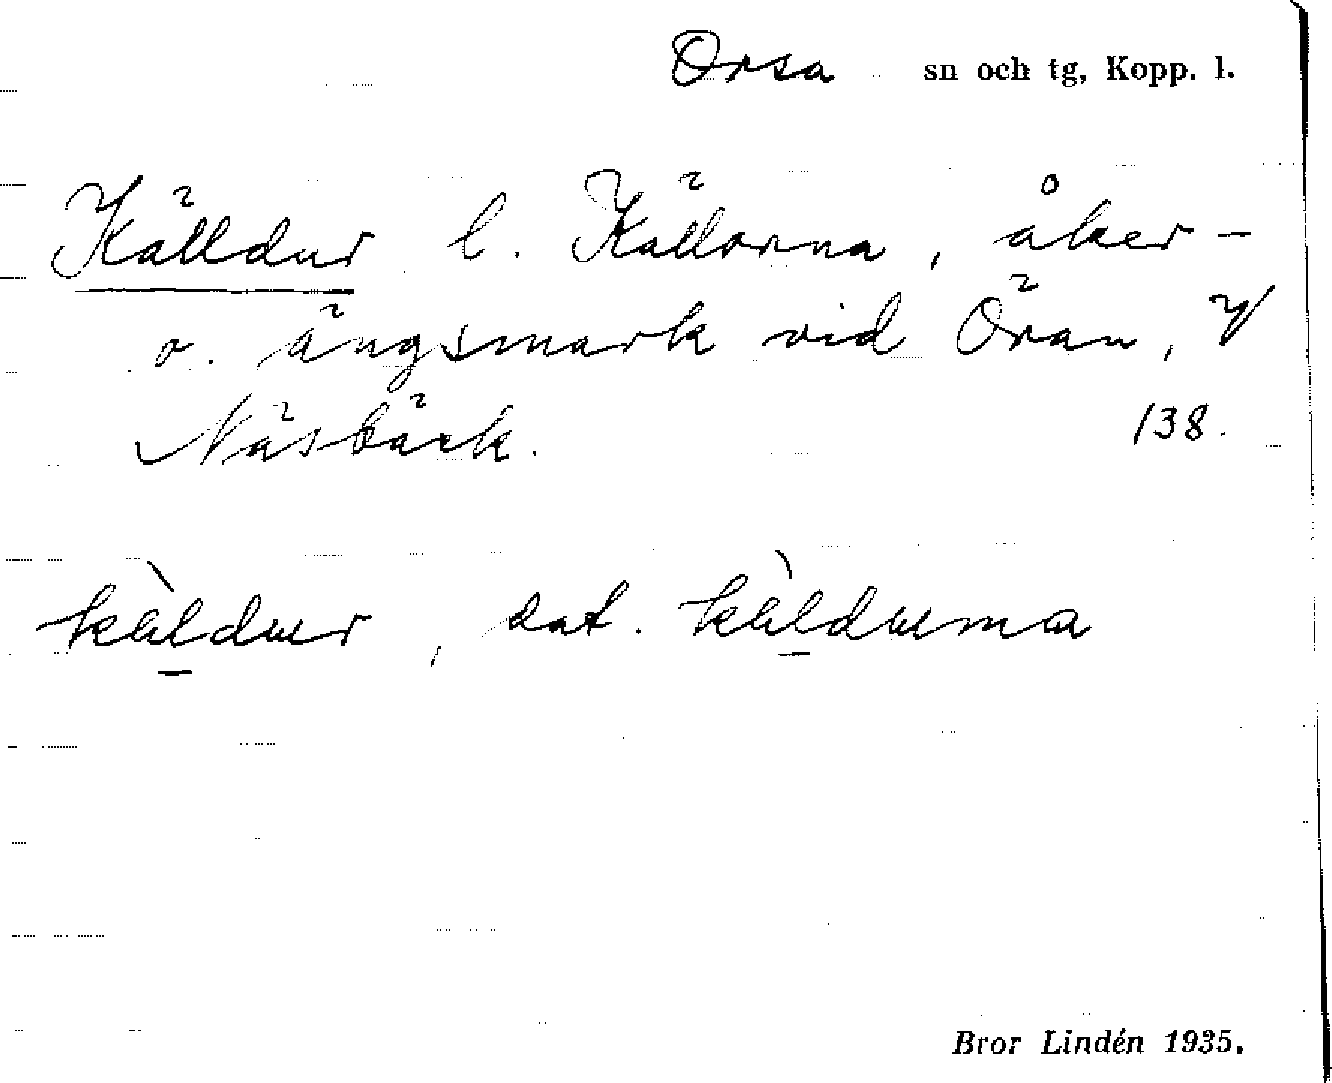 Orsa sn och tg, Kopp. l.
Källdur l. Källorna, åker-
o. ängsmark vid Öran, V
Näsbäck. 138.
kàldur, dat. kàlduma
Bror Lindén 1935.